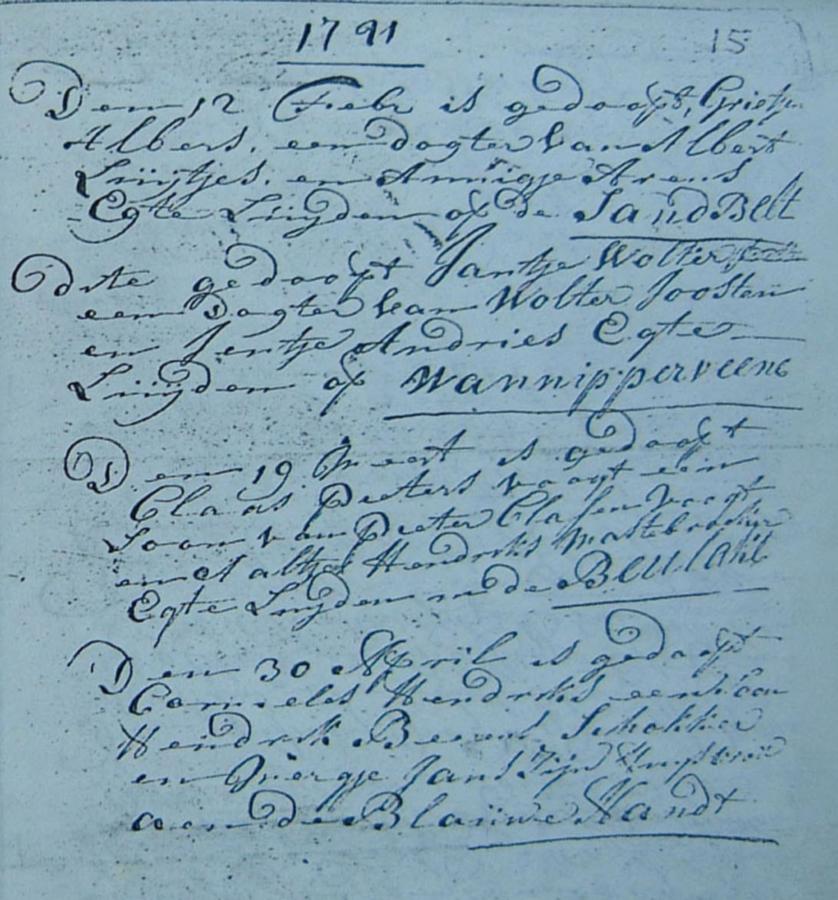 1791
15
Den 12 Febr is gedoopt, Grietje
Albers, een dogter van Albert
Luijtjes, en Annigje Arens
Egte Luijden op de Sand Belt
Dito gedoopt Jantje Wolter
een Dogter van Wolter Joosten
en Jentje Andries Egte
Luijden op Wannipperveene
Den 19 Meert is gedoopt
Claas Pieters Voogt een
Soon van Pieter Clasen Voogt
en Aaltje Hendriks Mastebroekje
Egte Luijden in de Beulake
Den 30 April is gedoopt
Cornelis Hendriks een Soon
Hendrik Beerent Schokker
en Mergje Jans Zijn Huijsvrou
aen de Blauwe Handt